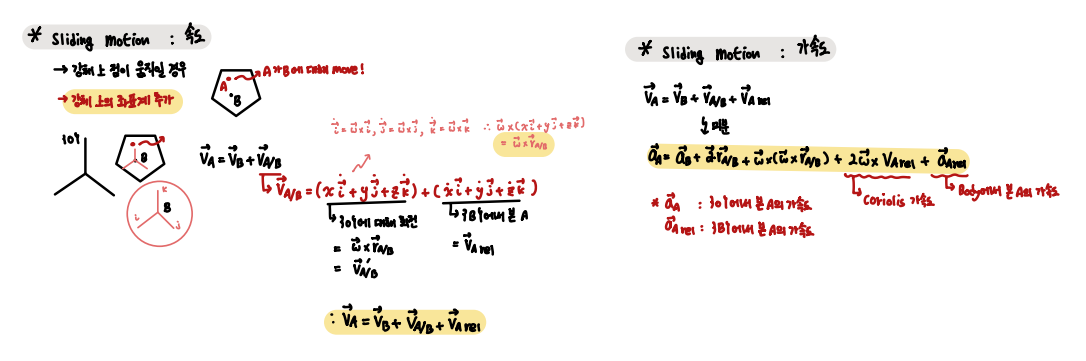 * Sliding Motion : 속도
→ 강체 상 점이 움직일 경우
→ 강체 상의 좌표계 추가
A
B
A가 B에 대해 move!
{0}
B
k
B
i
j
i̇ = ω⃗×i, j̇ = ω⃗×j, k̇ = ω⃗×k ∴ ω⃗×(xi⃗+yj⃗+zk⃗)
= ω⃗×r⃗A/B
V⃗A = V⃗B + V⃗A/B
↳ V⃗A/B = (x i⃗̇ + y j⃗̇ + z k⃗̇) + (ẋ i⃗ + ẏ j⃗ + ż k⃗)
↳ {0}에 대해 회전
= ω⃗×r⃗A/B
= V⃗A/B′
↳ {B}에서 본 A
= V⃗A rel
∴ V⃗A = V⃗B + V⃗A/B + V⃗A rel
* Sliding Motion : 가속도
V⃗A = V⃗B + V⃗A/B + V⃗A rel
↳ 미분
a⃗A = a⃗B + α⃗ r⃗A/B + ω⃗×(ω⃗×r⃗A/B) + 2ω⃗× VA rel + a⃗A rel
↳ Coriolis 가속도
↳ Body에서 본 A의 가속도
* a⃗A : {0}에서 본 A의 가속도
a⃗A rel : {B}에서 본 A의 가속도